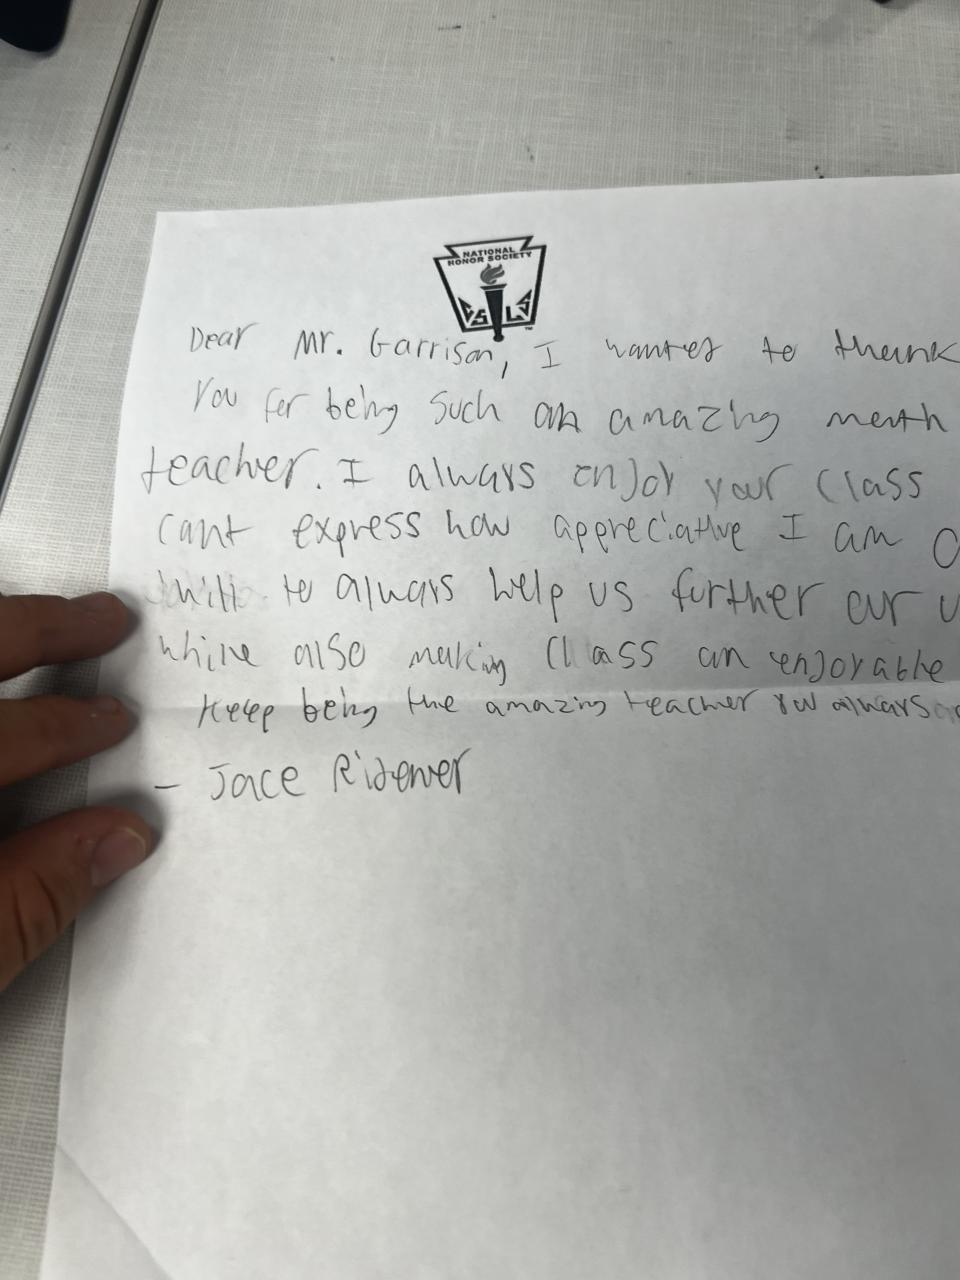 NATIONAL
HONOR SOCIETY
Dear Mr. Garrison, I wanted to thank
You for being such an amazing math
teacher. I always enjoy your class
cant express how appreciative I am
to always help us further our
while also making class an enjoyable
Keep being the amazing teacher you always
- Jace